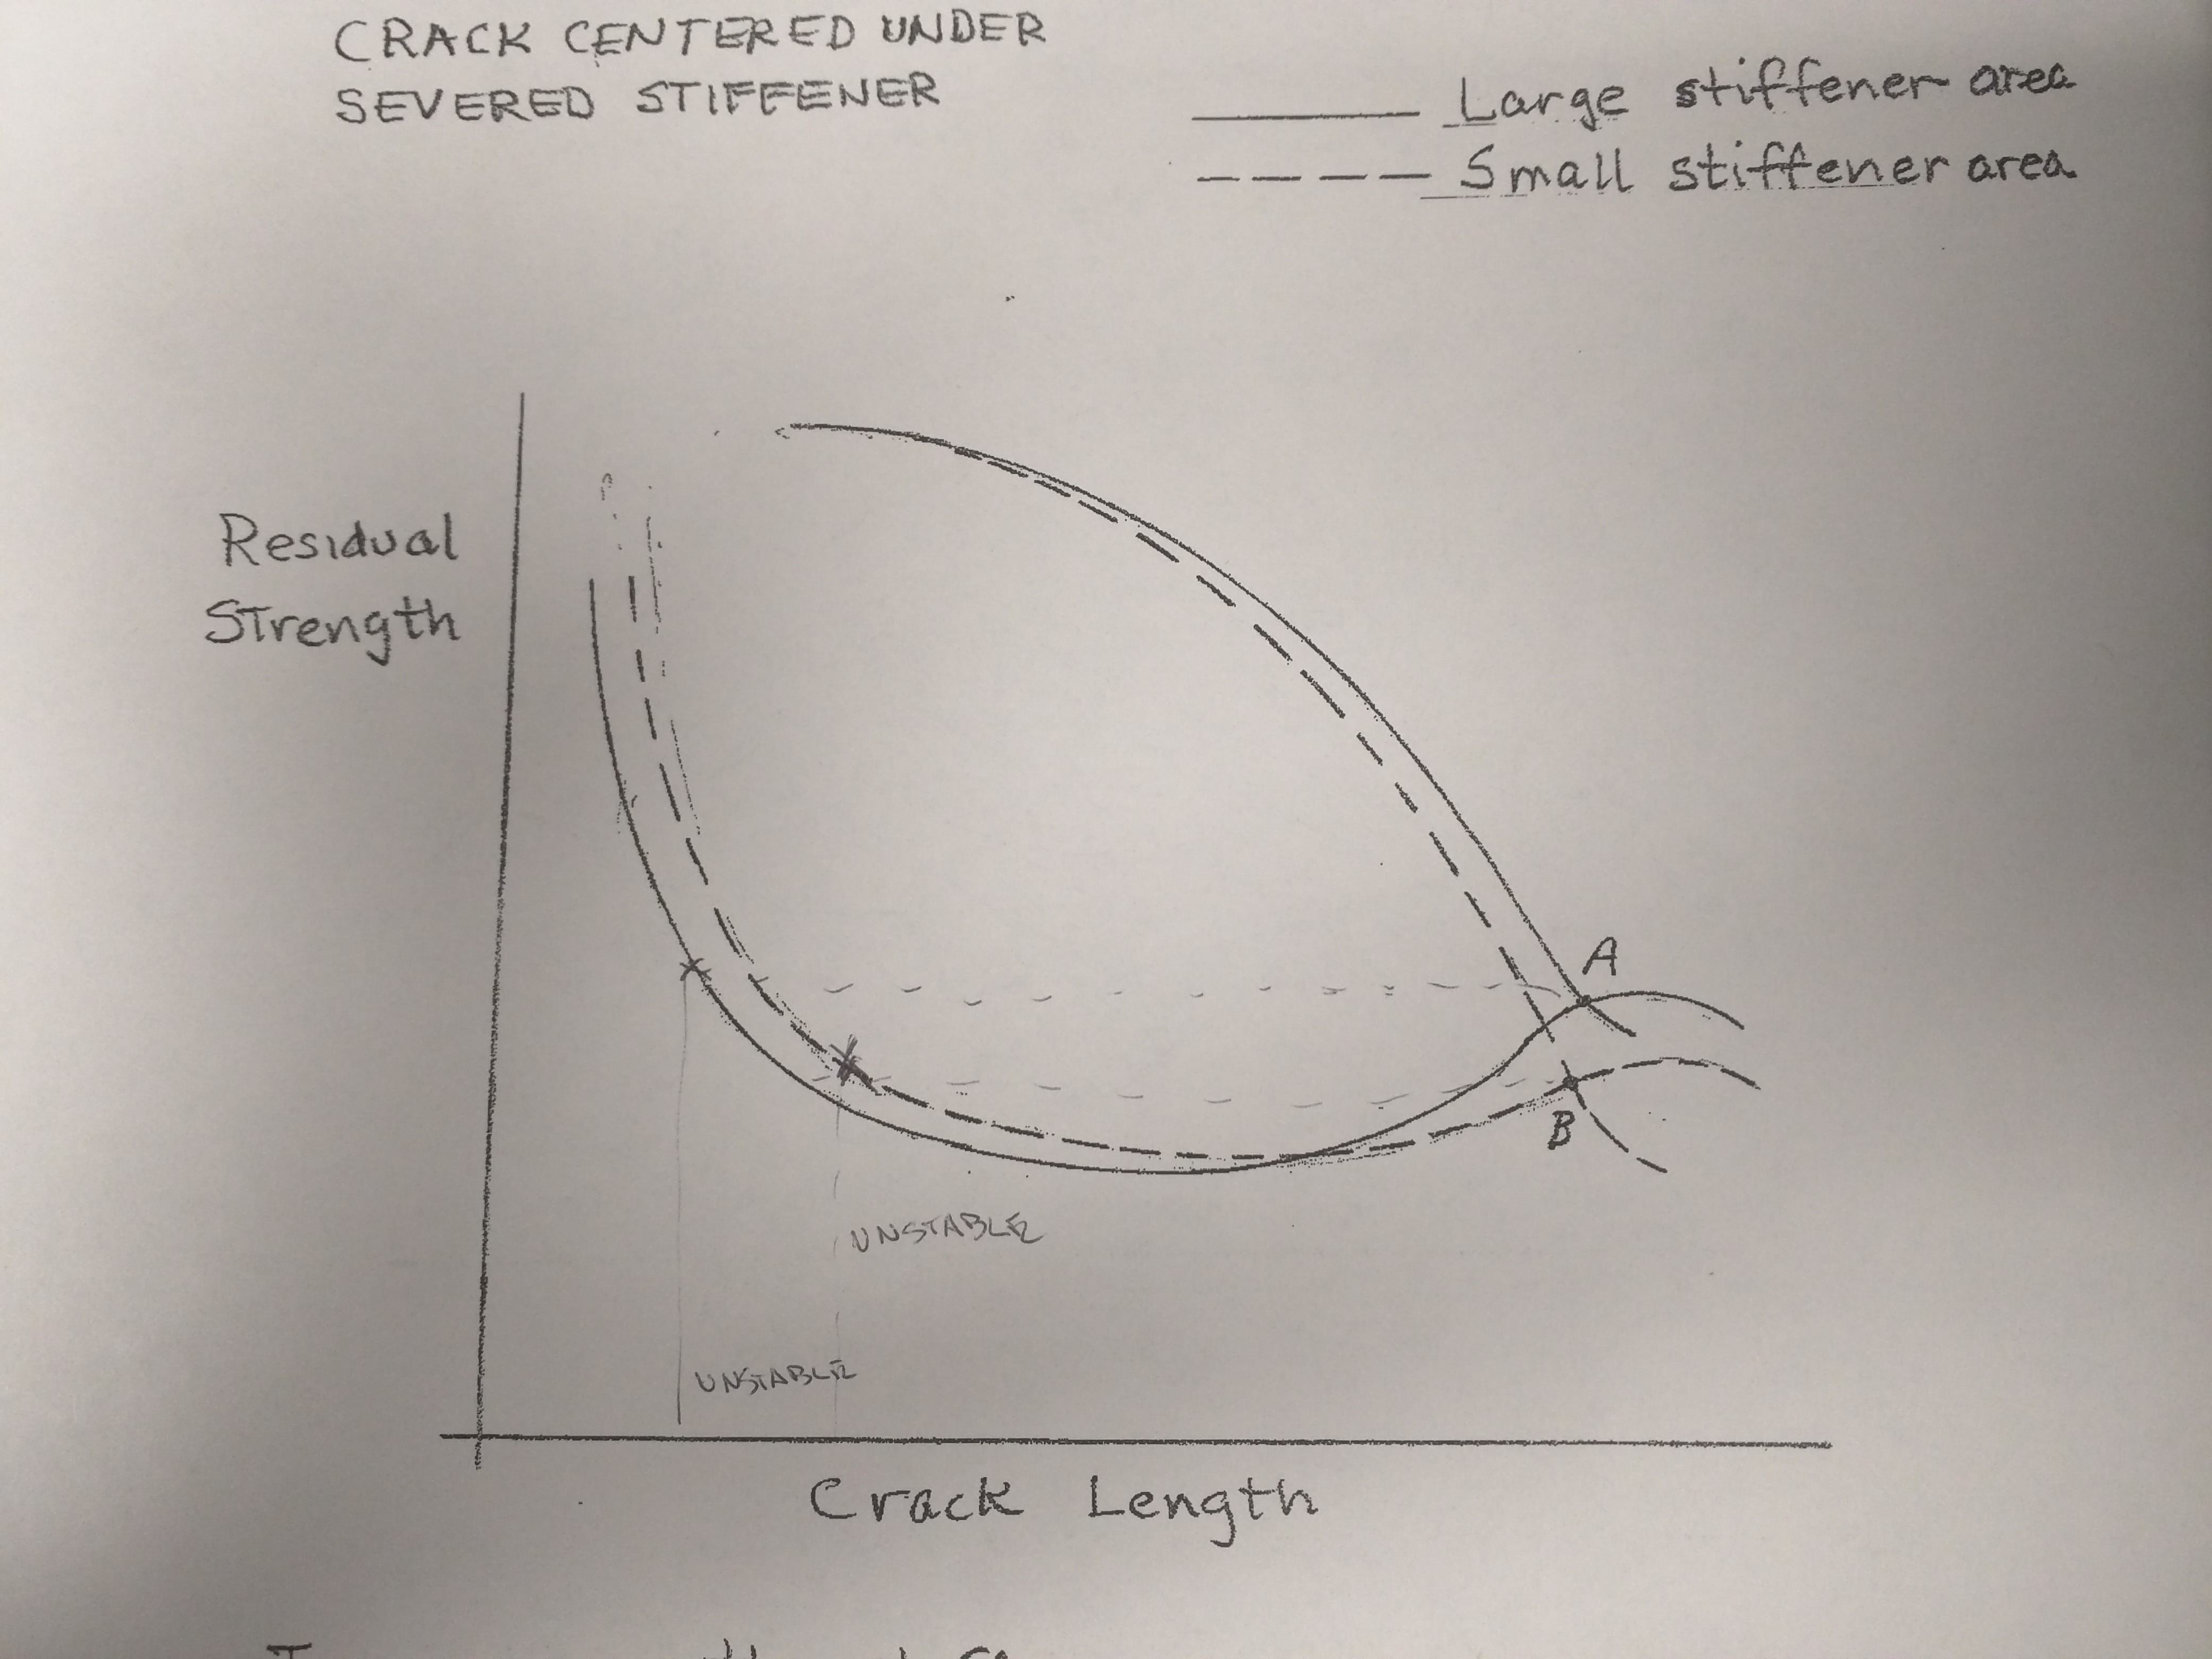 CRACK CENTERED UNDER
SEVERED STIFFENER
Large stiffener area
Small stiffener area
Residual
STrength
A
B
UNSTABLE
UNSTABLE
Crack Length